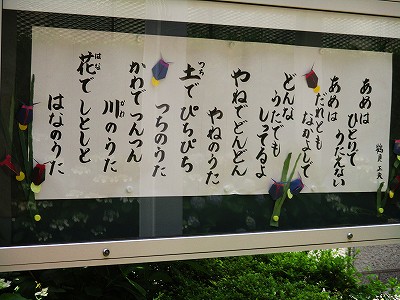 鶴見 正夫
あめは ひとりで
うたえない
あめは
だれとも なかよしで
どんな うたでも
しってるよ
やねでどんどん
やねのうた
つち
土で ぴちぴち
つちのうた
かわで つんつん
かわ
川のうた
はな
花で しとしと
はなのうた